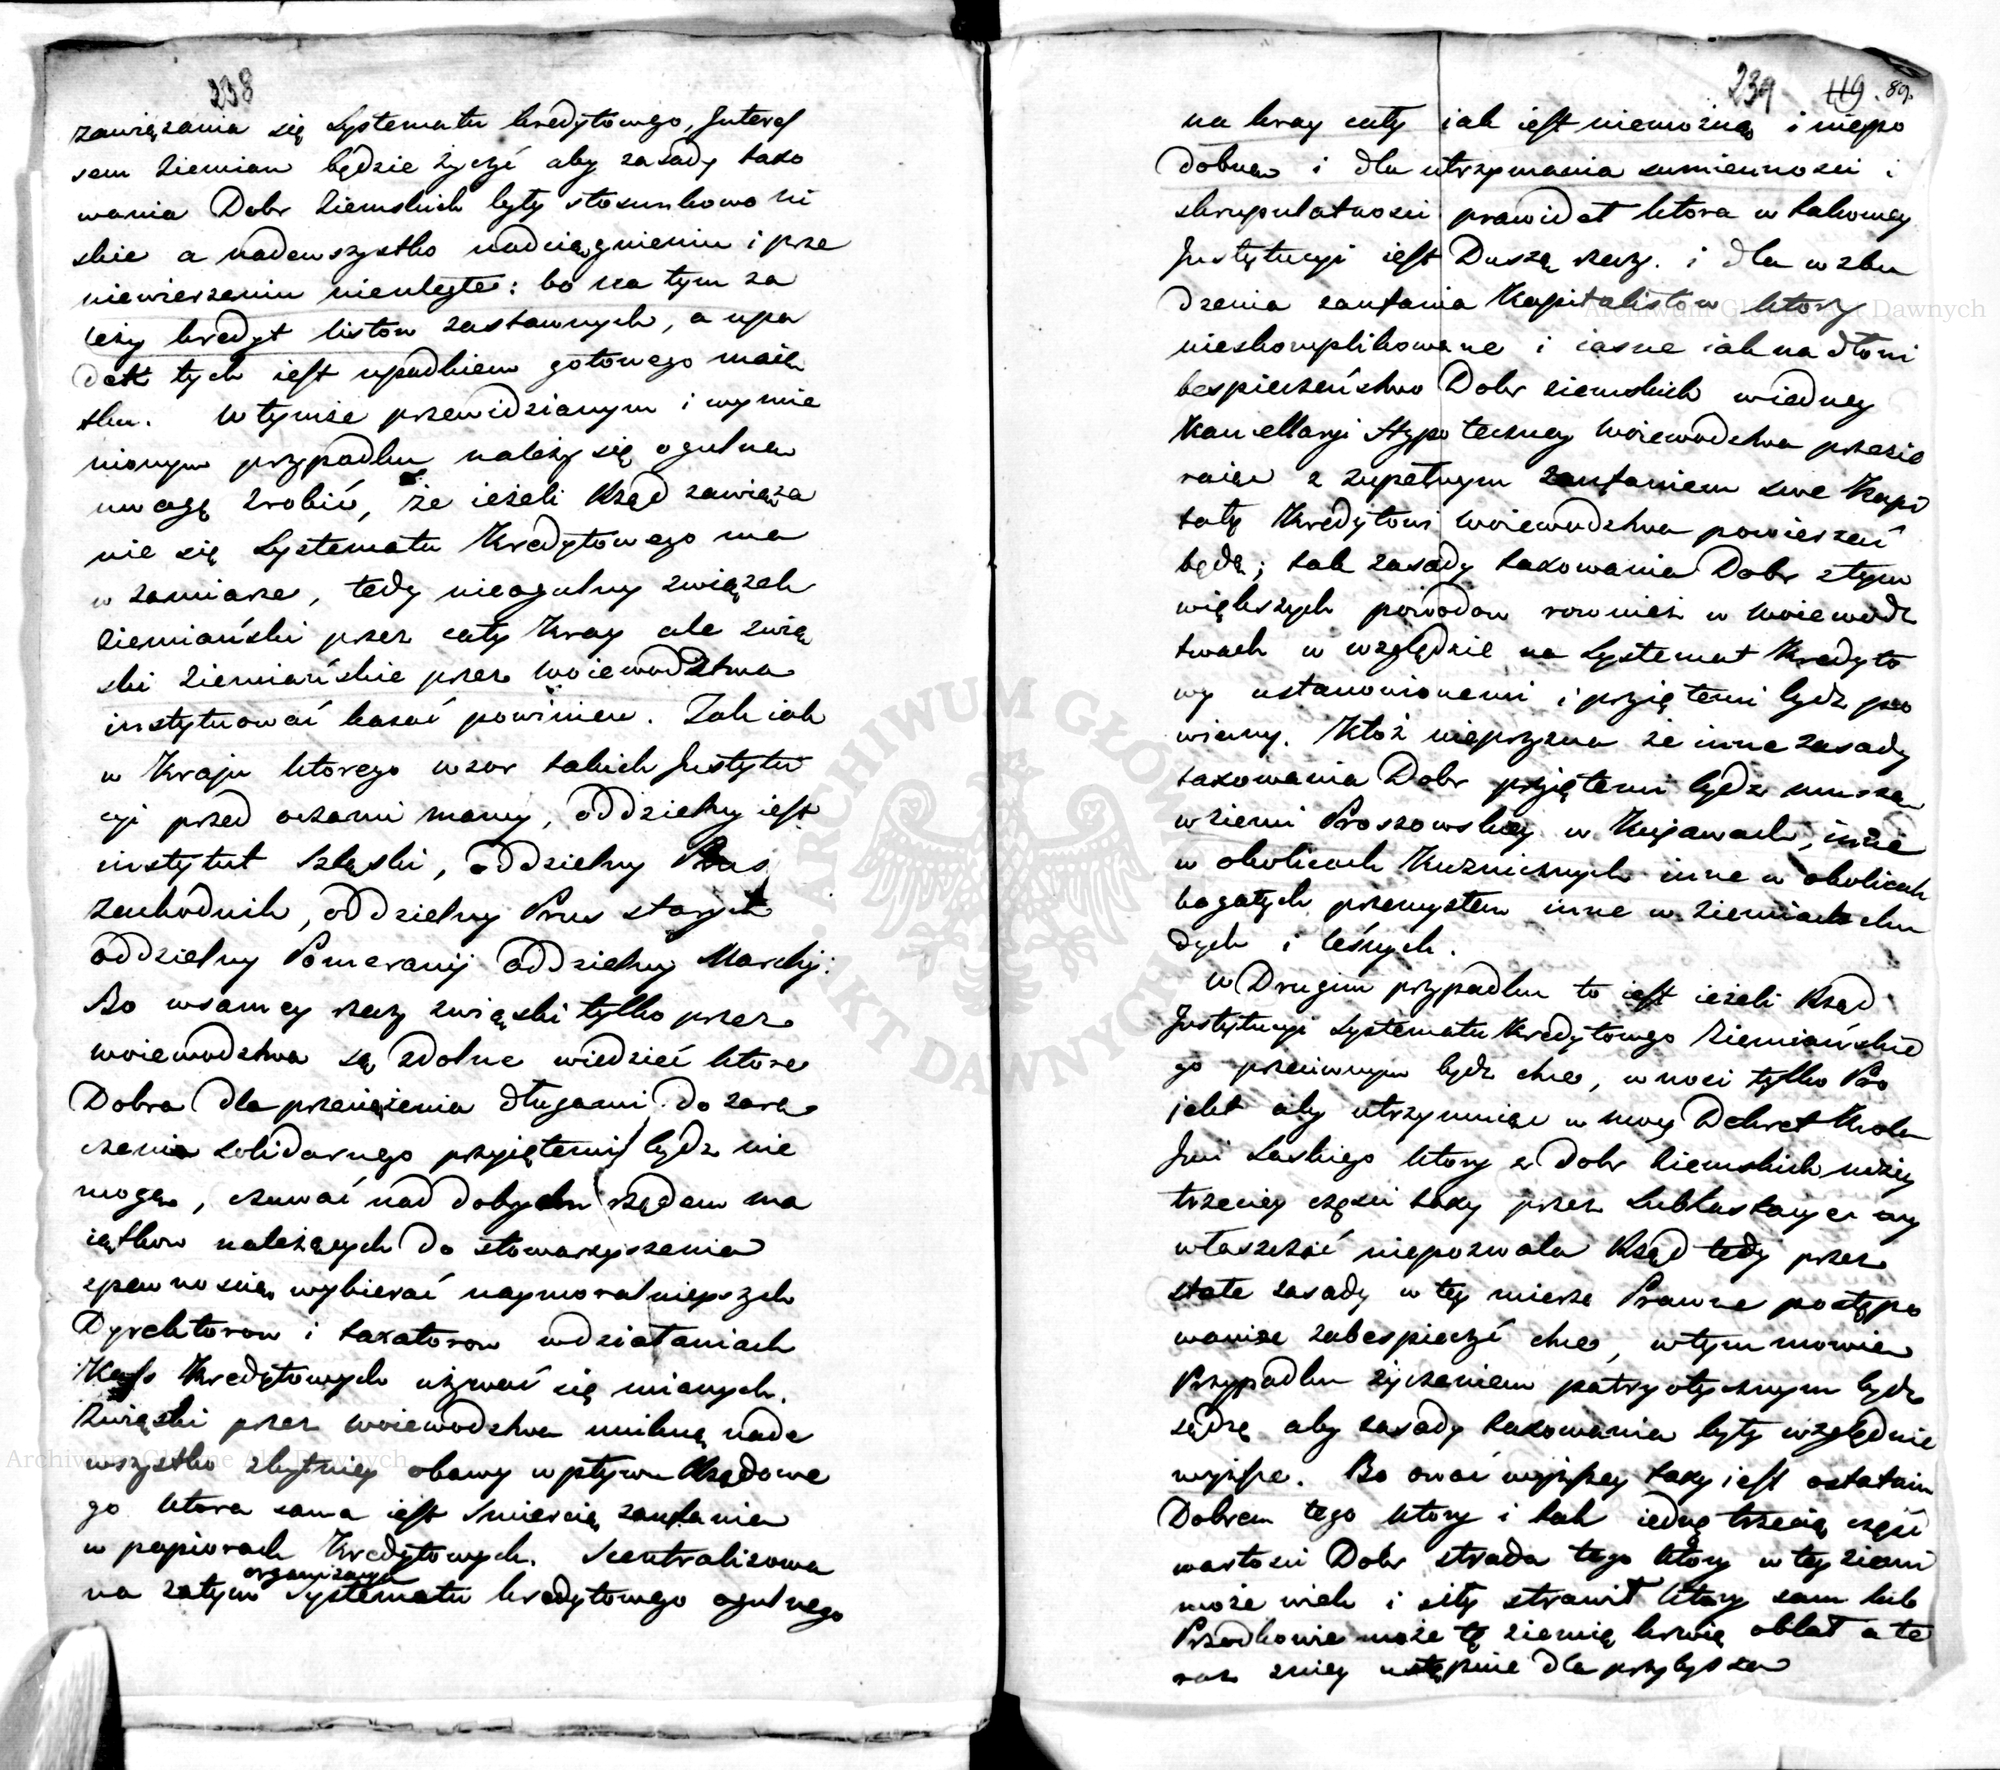 238
zawiązania się Systematu kredytowego, Interes
sem Ziemian będzie życzyć aby zasady taxo
wania Dobr Ziemskich były stosunkowo ni
skie a nadewszystko nadciągnieniu i prze
niewierzeniu nieuległe: bo na tym za
leży kredyt listow zastawnych, a upa
dek tych iest upadkiem gotowego maią
tku. W tymże przewidzianym i wymie
nionym przypadku należy się ogulną
uwagę zrobić, że ieżeli Rząd zawiąza
nie się Systematu Kredytowego ma
w zamiarze, tedy nieogulny związek
Ziemiański przez cały Kray ale zwią
ski Ziemiańskie przez Woiewodztwa
instytuować kazać powinien. Tak iak
w Kraju ktorego wzor takich Instytu
cyi przed oczami mamy, oddzielny iest
instytut Szląski, oddzielny Prus
Zachodnich, oddzielny Prus starych
oddzielny Pomeranij oddzielny Marchij:
Bo wsamey rzeczy związki tylko przez
woiewodztwa są zdolne wiedzieć ktore
Dobra dla przeciążenia długami do zarę
czenia solidarnego przyiętemi bydz nie
mogą, czuwać nad dobrym rządem ma
iątkow należących do stowarzyszenia
zpewnoscią wybierać naymoralnieyszych
Dyrektorow i taxatorow wdziałaniach
Kass Kredytowych używać się mianych.
Związki przez Woiewodztwa unikną nade
wszystko zbytniey obawy wpływu Rządowe
go ktora sama iest Smiercią zaufania
w papiorach Kredytowych. Scentralizowa
organizacya
na zatym Systematu kredytowego ogulnego
239 119 . 89.
na kray cały iak iest niemożną i niepo
dobną i dla utrzymania sumiennosci i
skrupulatnosci prawideł ktora w takowey
Instytucyi iest Duszą rzeczy. i dla wzbu
dzenia zaufania Kapitalistow ktorzy
nieskomplikowane i iasne iak na dłoni
bespieczeństwo Dobr ziemskich wiedney
Kancellaryi Hypoteczney Woiewodztwa przezie
raiąc z zupełnym zaufaniem swe Kapi
tały Kredytowi Woiewodztwa powierzać
będą; tak zasady taxowania Dobr ztym
większych powodow rownież w Woiewodz
twach w względzie na Systemat Kredyto
wy ustanowionemi i przyiętemi bydz po
winny. Któż nieprzyzna że inne zasady
taxowania Dobr przyiętemi bydz muszą
w ziemi Proszowskiey w Kujawach, inne
w okolicach Kuznicznych inne w okolicach
bogatych przemysłem inne w ziemiach chu
dych i leśnych.
W Drugim przypadku to iest ieżeli Rząd
Instytucyi Systematu Kredytowego Ziemiańskie
go przeciwnym bydz chce, wnosi tylko Pro
jekt aby utrzymuiąc w mocy Dekret Krola
Jmi Saskiego ktory z Dobr Ziemskich niżey
trzeciey częsci taxy przez Subhastacyą wy
właszczać niepozwala Rząd tedy przez
stałe zasady w tey mierze Prawne postępo
wanie zabespieczyć chce, wtym mowię
Przypadku życzeniem patryotycznym bydz
sądzę aby zasady taxowania były względnie
wyższe. Bo owoć wyższey taxy iest ostatnim
Dobrem tego ktory i tak iedną trzecią częsć
wartosci Dobr strada tego ktory w tey ziemi
może wiek i siły strawił ktory sam lub
Przodkowie może tę ziemię krwią oblał a te
raz zniey ustąpienie dla przybysza